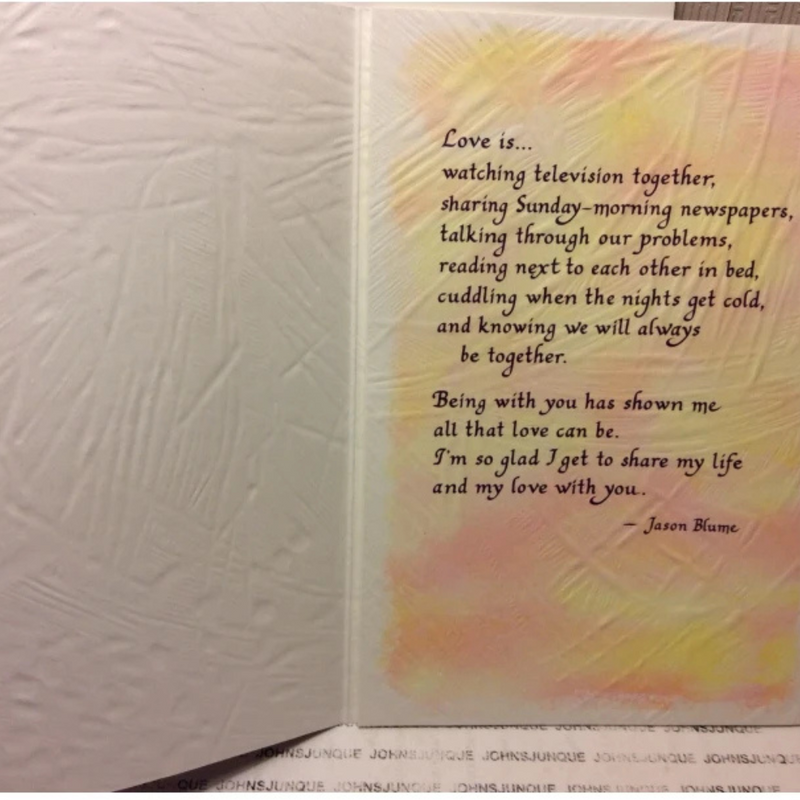 Love is...
watching television together,
sharing Sunday-morning newspapers,
talking through our problems,
reading next to each other in bed,
cuddling when the nights get cold,
and knowing we will always
be together.
Being with you has shown me
all that love can be.
I'm so glad I get to share my life
and my love with you.
— Jason Blume
JOHNSJUNQUE JOHNSJUNQUE JOHNSJUNQUE
JOHNSJUNQUE JOHNSJUNQUE JOHNSJUNQUE JOHNSJUNQUE JOHNSJUNQUE
QUE JOHNSJUNQUE JOHNSJUNQUE JOHNSJUNQUE JOHNSJUNQUE JOHNSJUNQUE